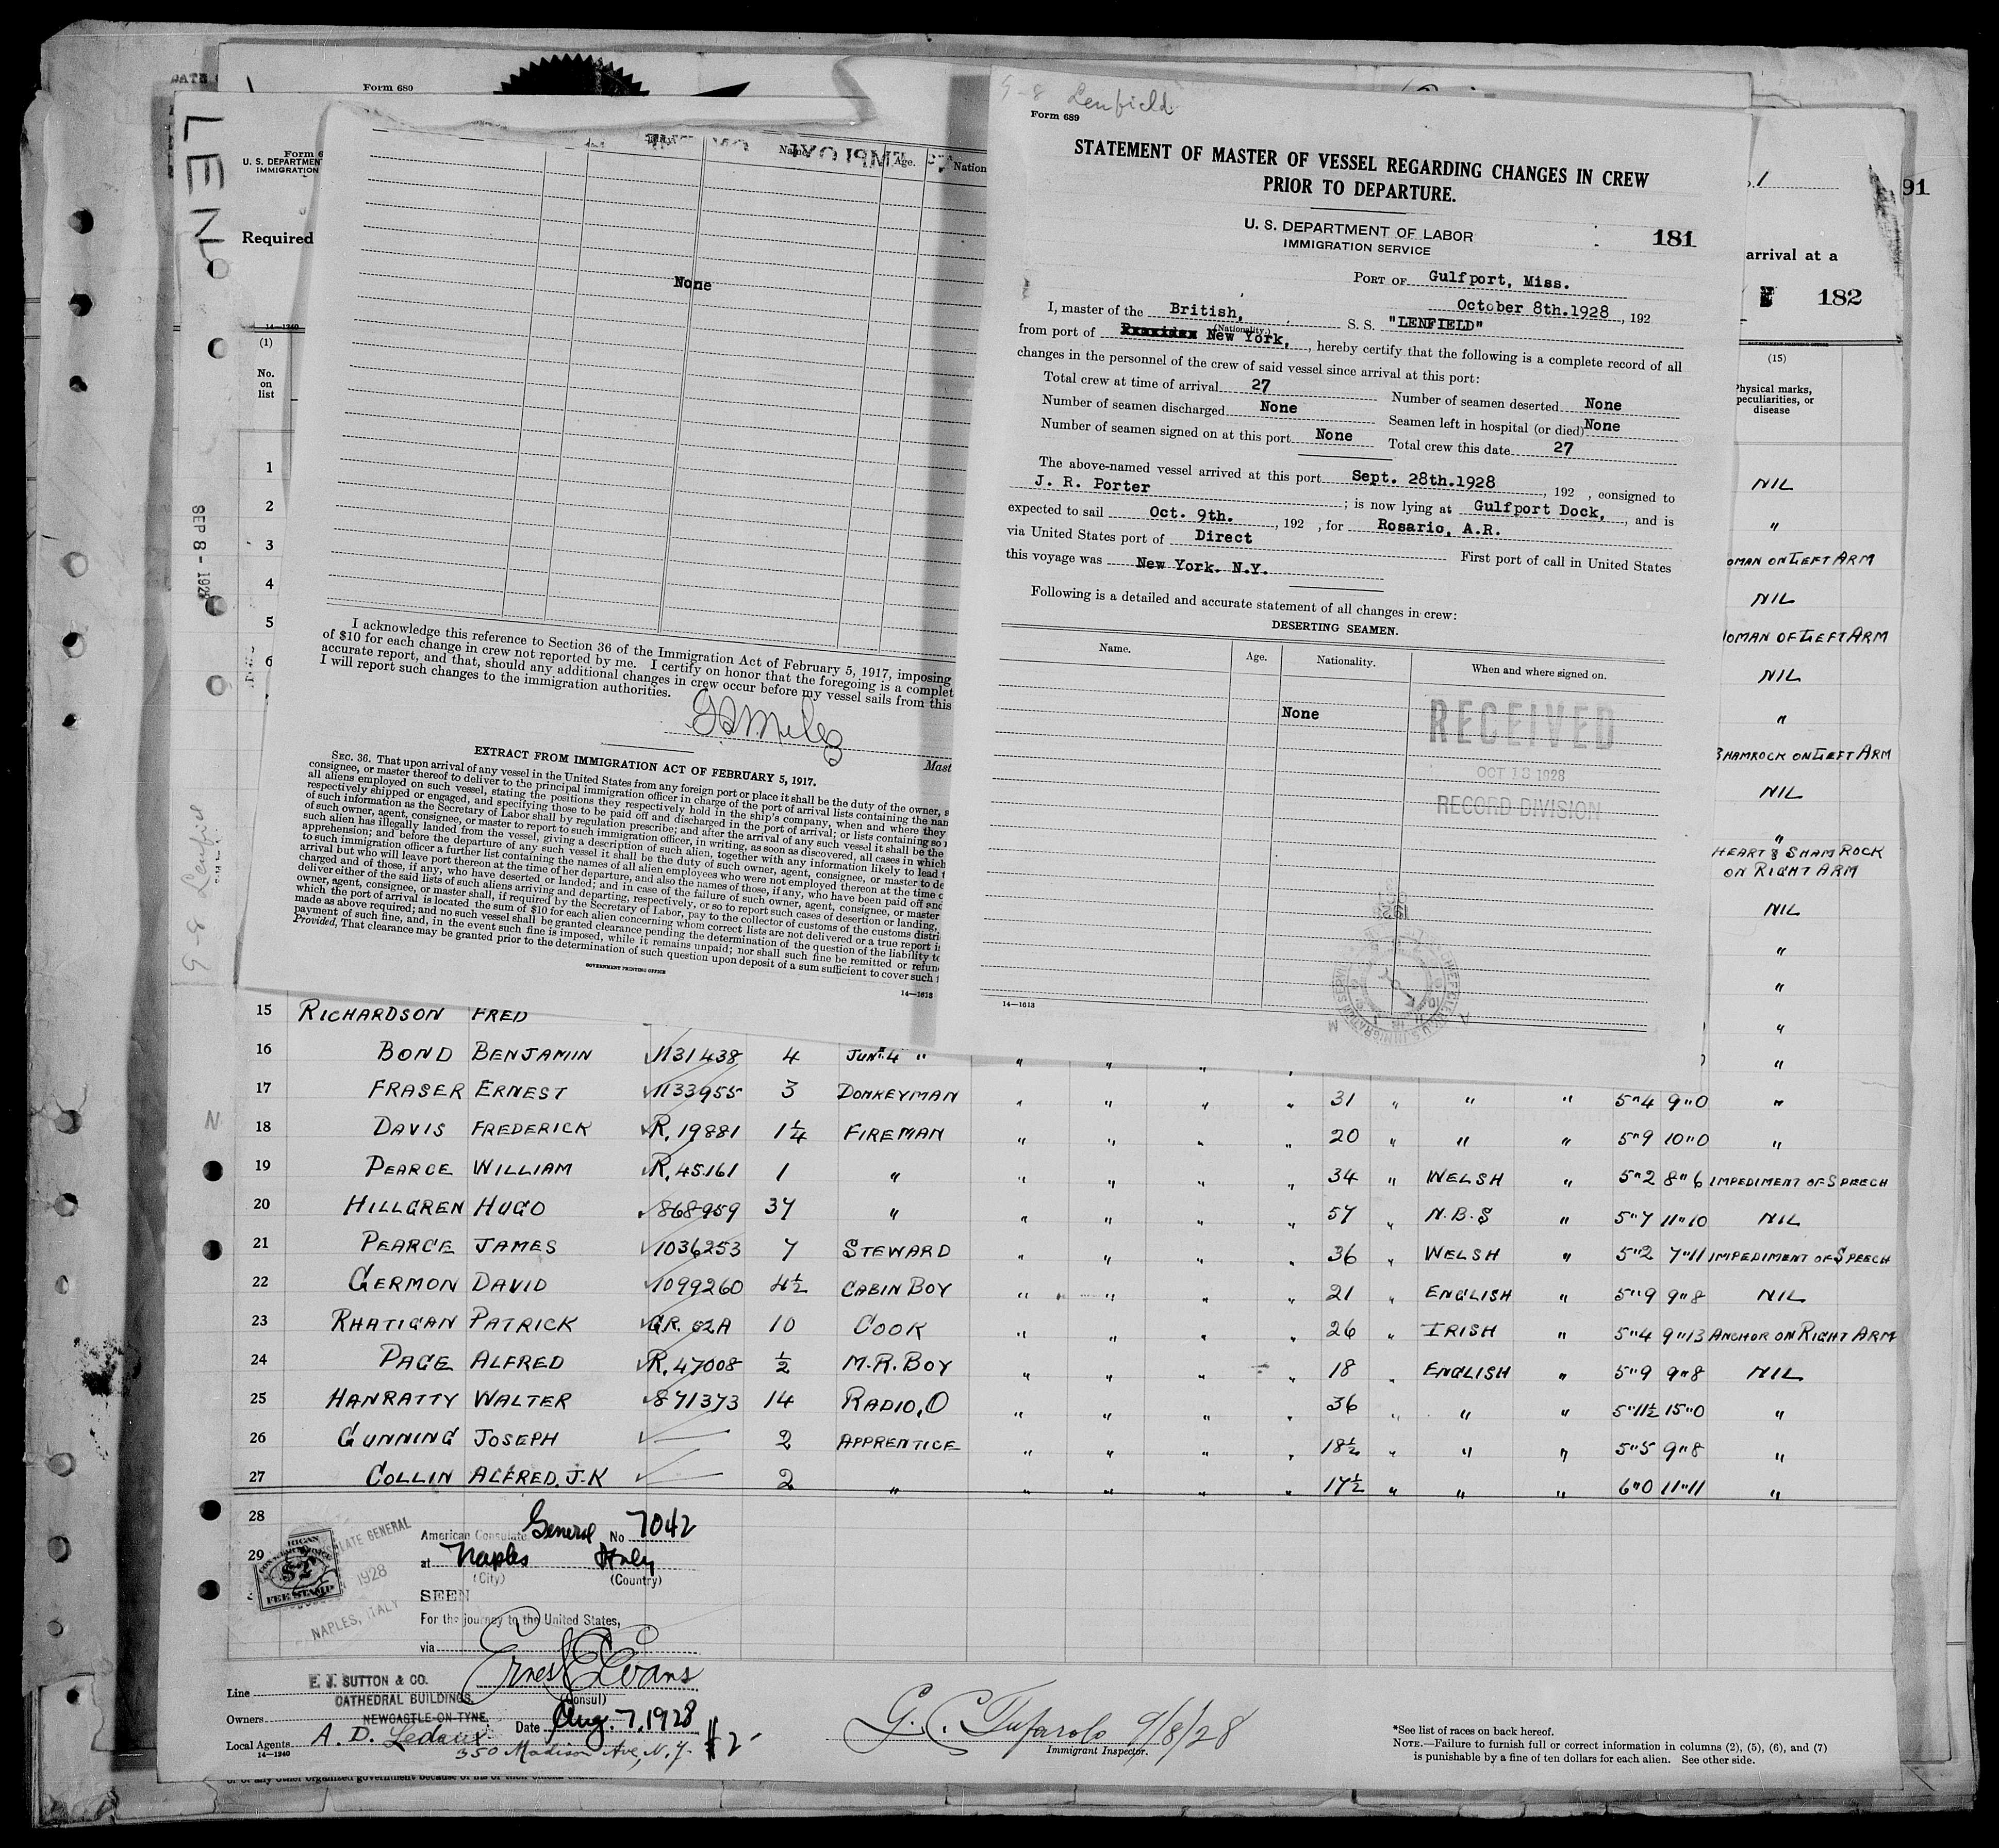 DATE
Form 680
LEN
Form 6
U. S. DEPARTMEN
IMMIGRATION
Required
14—1240
(1)
No.
on
list
1
2
3
4
5
6
SEP 8 - 1928
G-8 Lenfiel
N
Name
Age.
Nation
None
I acknowledge this reference to Section 36 of the Immigration Act of February 5, 1917, imposing
of $10 for each change in crew not reported by me. I certify on honor that the foregoing is a complet
accurate report, and that, should any additional changes in crew occur before my vessel sails from this
I will report such changes to the immigration authorities.
Mast
EXTRACT FROM IMMIGRATION ACT OF FEBRUARY 5, 1917.
SEC. 36. That upon arrival of any vessel in the United States from any foreign port or place it shall be the duty of the owner, a
consignee, or master thereof to deliver to the principal immigration officer in charge of the port of arrival lists containing the nam
all aliens employed on such vessel, stating the positions they respectively hold in the ship's company, when and where they
respectively shipped or engaged, and specifying those to be paid off and discharged in the port of arrival; or lists containing so
of such information as the Secretary of Labor shall by regulation prescribe; and after the arrival of any such vessel it shall be the
of such owner, agent, consignee, or master to report to such immigration officer, in writing, as soon as discovered, all cases in which
such alien has illegally landed from the vessel, giving a description of such alien, together with any information likely to lead t
apprehension; and before the departure of any such vessel it shall be the duty of such owner, agent, consignee, or master to de
to such immigration officer a further list containing the names of all alien employees who were not employed thereon at the time o
arrival but who will leave port thereon at the time of her departure, and also the names of those, if any, who have been paid off and
charged and of those, if any, who have deserted or landed; and in case of the failure of such owner, agent, consignee, or master
deliver either of the said lists of such aliens arriving and departing, respectively, or so to report such cases of desertion or landing,
owner, agent, consignee, or master shall, if required by the Secretary of Labor, pay to the collector of customs of the customs distri
which the port of arrival is located the sum of $10 for each alien concerning whom correct lists are not delivered or a true report i
made as above required; and no such vessel shall be granted clearance pending the determination of the question of the liability to
payment of such fine, and, in the event such fine is imposed, while it remains unpaid; nor shall such fine be remitted or refun
Provided, That clearance may be granted prior to the determination of such question upon deposit of a sum sufficient to cover such
GOVERNMENT PRINTING OFFICE
14—1613
G-8 Lenfield
Form 689
STATEMENT OF MASTER OF VESSEL REGARDING CHANGES IN CREW
PRIOR TO DEPARTURE.
U. S. DEPARTMENT OF LABOR
IMMIGRATION SERVICE
181
PORT OF Gulfport, Miss.
October 8th.1928, 192
I, master of the British, S. S. "LENFIELD"
(Nationality.)
from port of New York, , hereby certify that the following is a complete record of all
changes in the personnel of the crew of said vessel since arrival at this port:
Total crew at time of arrival 27 Number of seamen deserted None
Number of seamen discharged None Seamen left in hospital (or died) None
Number of seamen signed on at this port None Total crew this date 27
The above-named vessel arrived at this port Sept. 28th.1928, 192 , consigned to
J. R. Porter ; is now lying at Gulfport Dock, , and is
expected to sail Oct. 9th. , 192 , for Rosario, A.R.
via United States port of Direct First port of call in United States
this voyage was New York. N.Y.
Following is a detailed and accurate statement of all changes in crew:
DESERTING SEAMEN.
Name. Age. Nationality. When and where signed on.
None
RECEIVED
OCT 13 1928
RECORD DIVISION
14—1613
91
arrival at a
182
(15)
Physical marks,
peculiarities, or
disease
NIL
"
OMAN ON LEFT ARM
NIL
WOMAN OF LEFT ARM
NIL
"
SHAMROCK ON LEFT ARM
NIL
"
HEART & SHAMROCK
ON RIGHT ARM
NIL
"
"
"
15 RICHARDSON FRED "
16 BOND BENJAMIN 1131438 4 JUNR 4 " " " " "
17 FRASER ERNEST 1133955 3 DONKEYMAN " " " " 31 " " " 5"4 9"0 "
18 DAVIS FREDERICK R. 19881 1¼ FIREMAN " " " " 20 " " " 5"9 10"0 "
19 PEARCE WILLIAM R. 45161 1 " " " " " 34 " WELSH " 5"2 8"6 IMPEDIMENT OF SPEECH
20 HILLGREN HUGO 868959 37 " " " " " 57 " N.B.S " 5"7 11"10 NIL
21 PEARCE JAMES 1036253 7 STEWARD " " " " 36 " WELSH " 5"2 7"11 IMPEDIMENT OF SPEECH
22 GERMON DAVID 1099260 4½ CABIN BOY " " " " 21 " ENGLISH " 5"9 9"8 NIL
23 RHATIGAN PATRICK GR. 62A 10 COOK " " " " 26 " IRISH " 5"4 9"13 ANCHOR ON RIGHT ARM
24 PAGE ALFRED R. 47008 ½ M.R. BOY " " " " 18 " ENGLISH " 5"9 9"8 NIL
25 HANRATTY WALTER 871373 14 RADIO, O " " " " 36 " " " 5"11½ 15"0 "
26 GUNNING JOSEPH 2 APPRENTICE " " " " 18½ " " " 5"5 9"8 "
27 COLLIN ALFRED. J-K 2 " " " " " 17½ " " " 6"0 11"11 "
28
29
American Consulate General No 7042
at Naples Italy
(City) (Country)
SEEN
For the journey to the United States,
via
Ernest E Evans
(Consul)
Date Aug. 7, 1928
$2
FEE STAMP
1928
NAPLES, ITALY
Line E. J. SUTTON & CO.
CATHEDRAL BUILDINGS
Owners NEWCASTLE-ON-TYNE.
Local Agents A. D. Ledoux
350 Madison Ave, N.Y. $2-
14—1240
G. C. Tufarolo 9/8/28
Immigrant Inspector.
*See list of races on back hereof.
NOTE.—Failure to furnish full or correct information in columns (2), (5), (6), and (7)
is punishable by a fine of ten dollars for each alien. See other side.